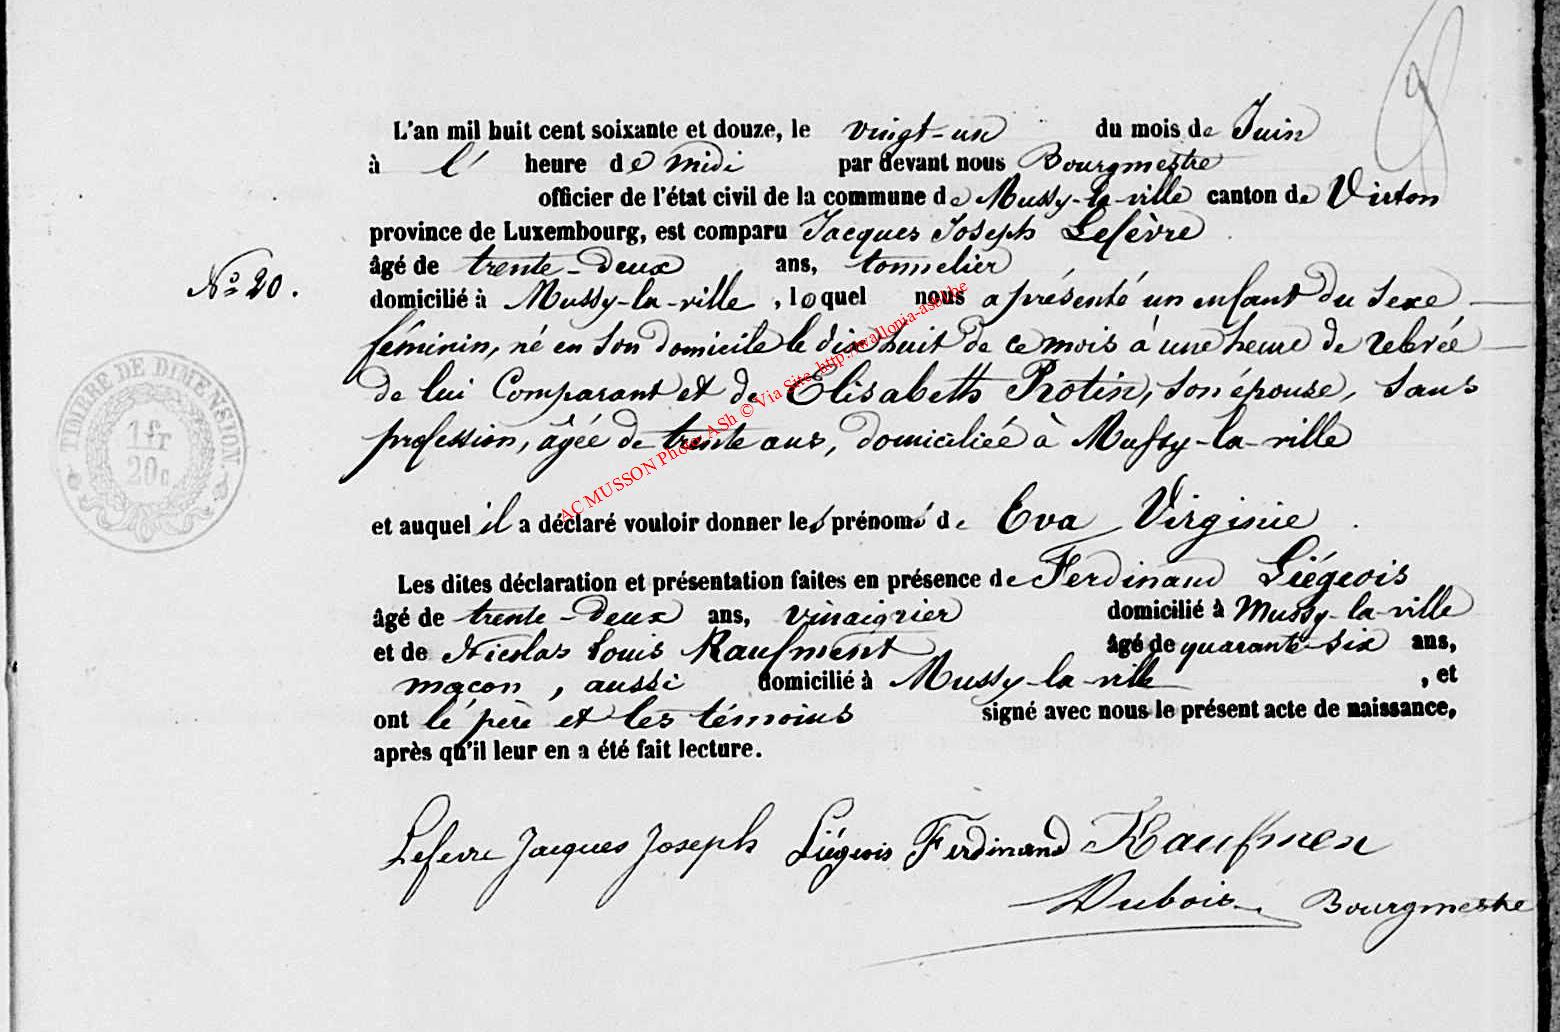 L'an mil huit cent soixante et douze, le vingt-un du mois de Juin
à l' heure de midi par devant nous Bourgmestre
officier de l'état civil de la commune de Mussy-la-ville canton de Virton
province de Luxembourg, est comparu Jacques Joseph Lefèvre
N° 20.
âgé de trente-deux ans, tonnelier
domicilié à Mussy-la-ville, lequel nous a présenté un enfant du sexe
féminin, né en son domicile le dix huit de ce mois à une heure de relevée
de lui Comparant et de Elisabeth Protin, son épouse, sans
profession, âgée de trente ans, domiciliée à Mussy-la-ville
et auquel il a déclaré vouloir donner les prénoms de Eva Virginie.
Les dites déclaration et présentation faites en présence de Ferdinand Liégeois
âgé de trente-deux ans, vinaigrier domicilié à Mussy-la-ville
et de Nicolas Louis Kaufment âgé de quarante-six ans,
maçon, aussi domicilié à Mussy-la-ville, et
ont le père et les témoins signé avec nous le présent acte de naissance,
après qu'il leur en a été fait lecture.
Lefevre Jacques Joseph Liégeois Ferdinand Kaufmen
Dubois Bourgmestre
TIMBRE DE DIMENSION.
1 fr
20c
AC MUSSON Photo ASh © Via Site http://wallonia-asbl.be